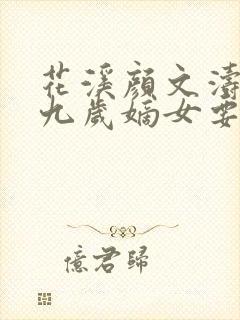 花溪顏文濤
九歲嫡女要
億君歸